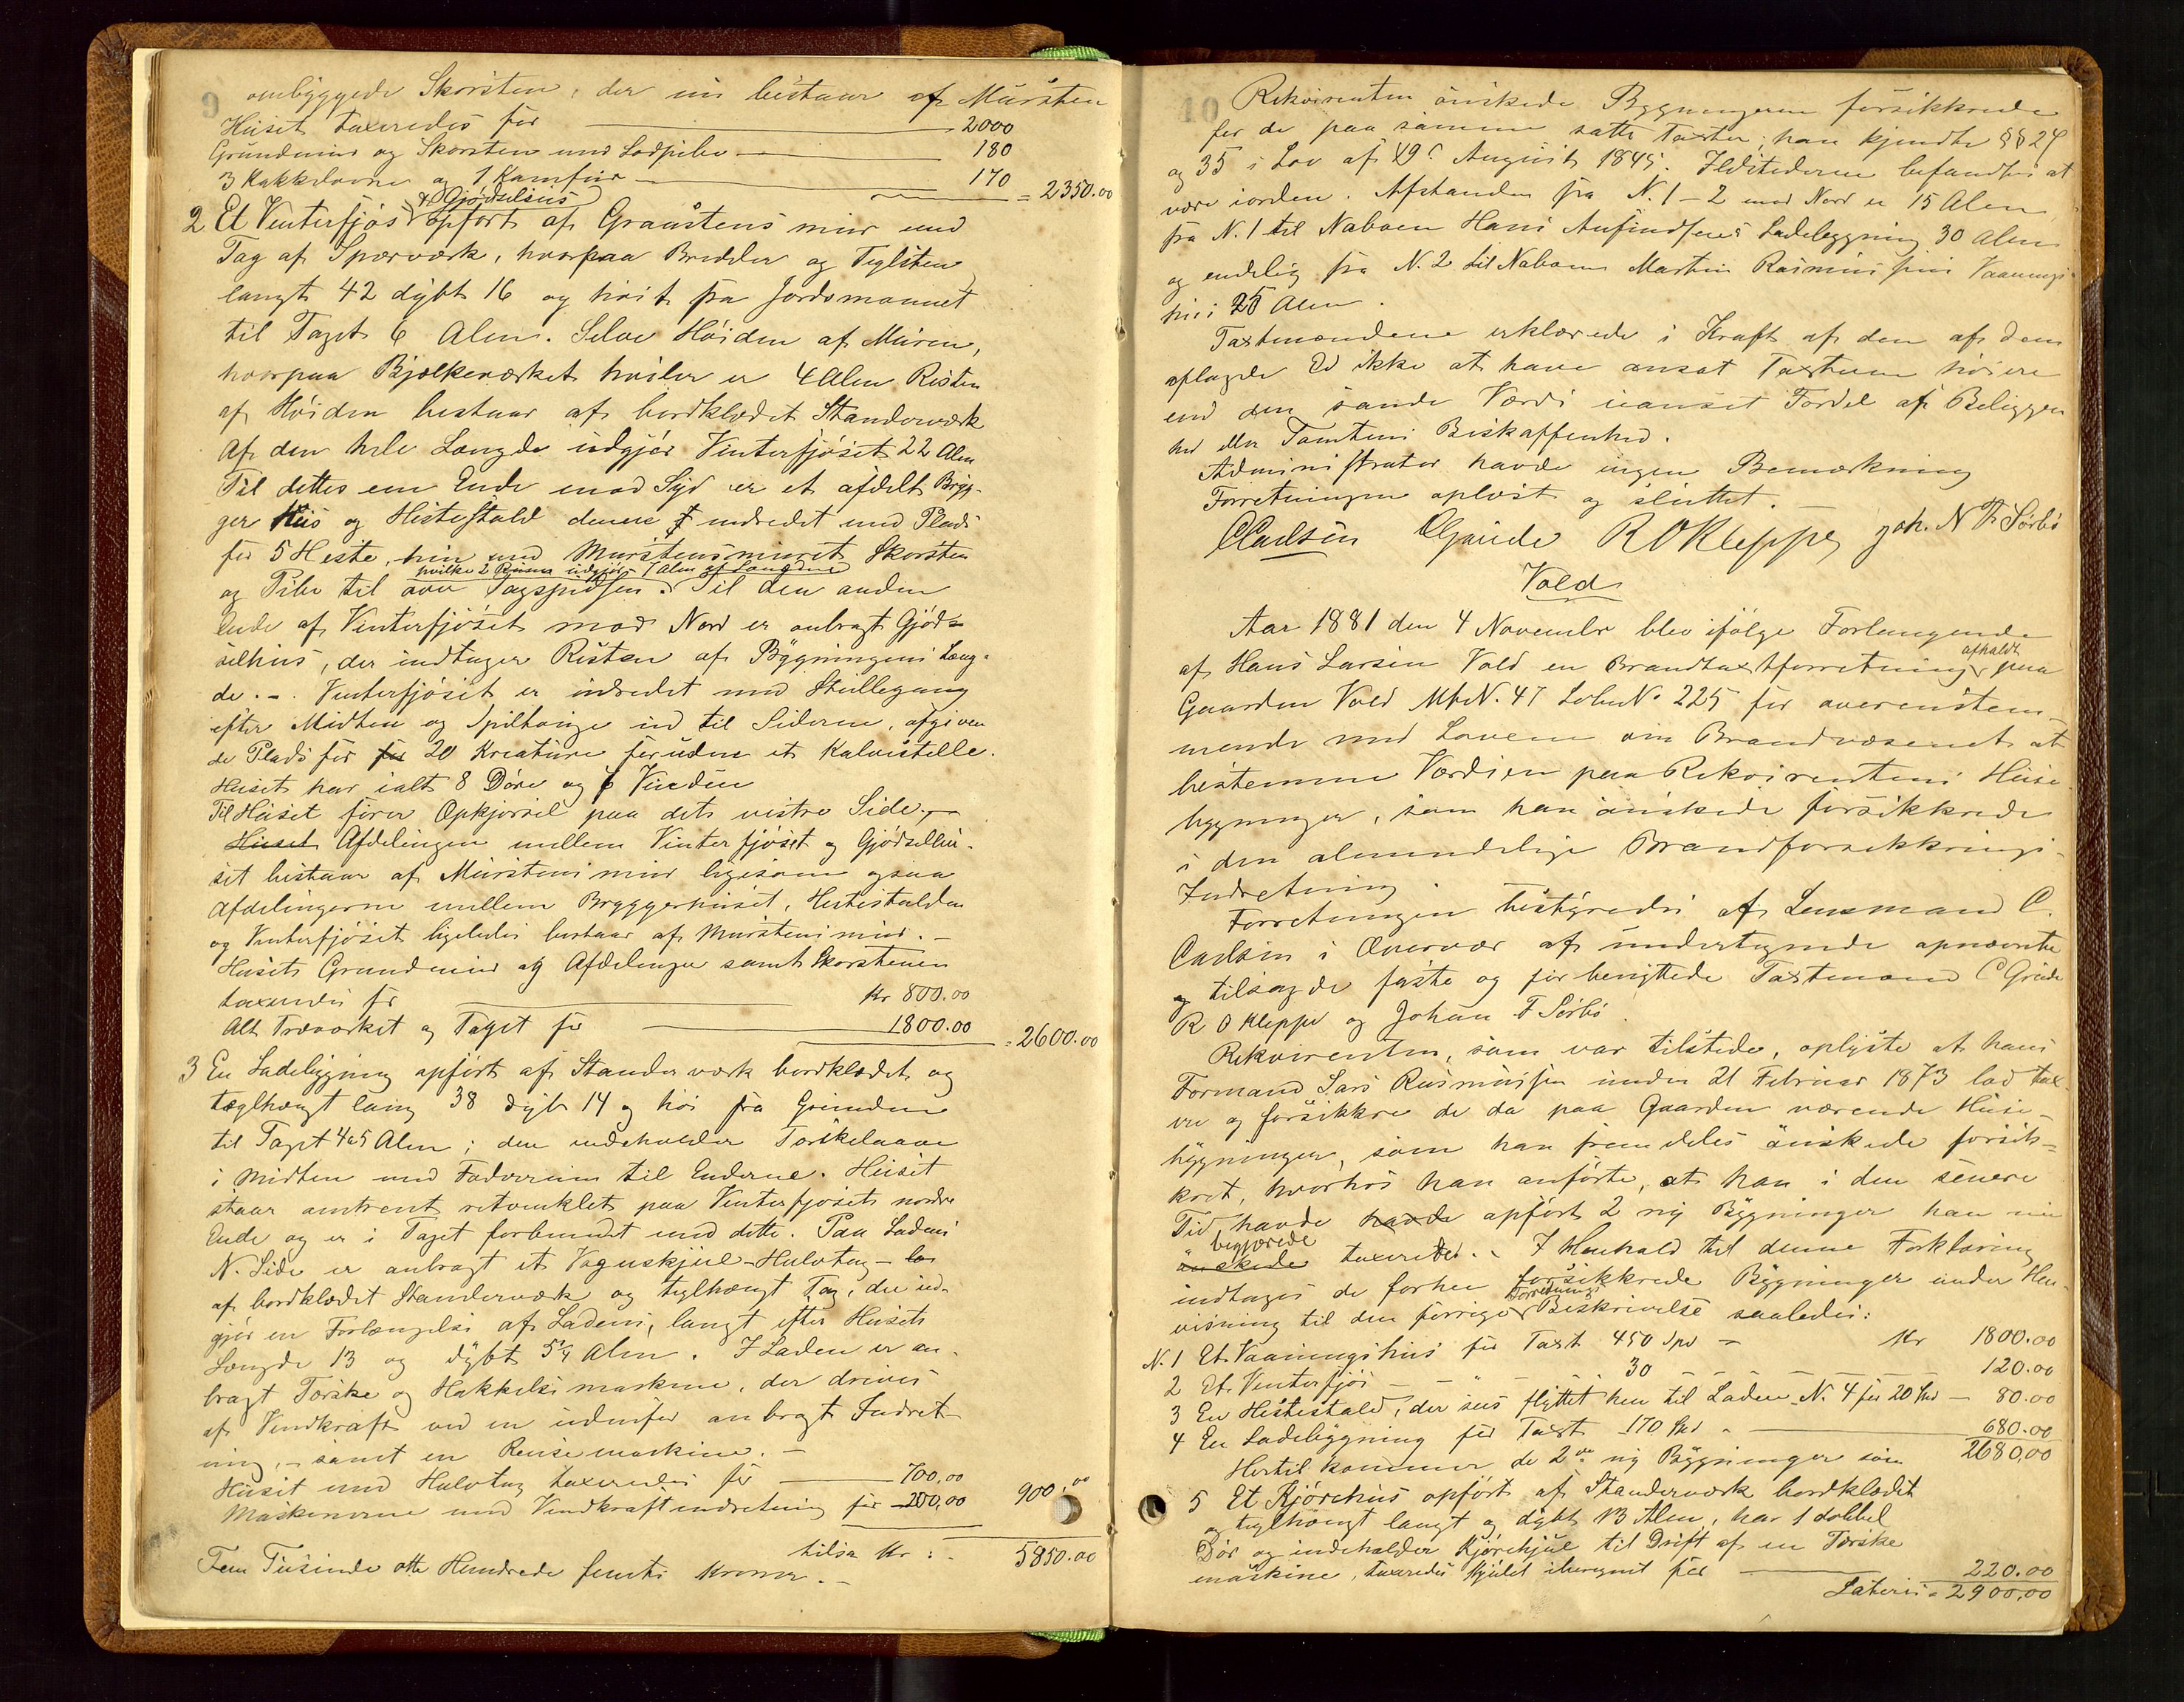 9
ombyggede Skorsten, der nu bestaar af Mursten
Huset taxeredes for 2000
Grundmur og Skorsten med Lodpibe 180
3 Kakkelovne og 1 Komfur 170 = 2350.00
& Gjødselhus
2 Et Vinterfjøs opført af Graastens mur med
Tag af Sperværk, hvorpaa Bredder og Teglsten
langt 42 dybt 16 og høit fra Jordsmonnet
til Taget 6 Alen. Selve Høiden af Muren,
hvorpaa Bjelkeværket hviler er 4 Alen Resten
af Høiden bestaar af bordklædt Standerværk
Af den hele Længde udgjør Vinterfjøset 22 Alen
Til dettes ene Ende mod Syd er et afdelt Bryg-
ger Hus og Hestestald denne indredet med Plads
for 5 Heste, hin med Murstensmuret Skorsten
hvilke 2 Rum udgjør Alen af Længden
og Pibe til over Tagspidsen. Til den anden
Ende af Vinterfjøset mod Nord er anbragt Gjød-
selhus, der indtager Resten af Bygningens Læng-
de. - Vinterfjøset er indredet med Stillegang
efter Midten og Spiltouge ind til Siderne, afgiven
de Plads for for 20 Kreature foruden et Kalvestelle.
Huset har ialt 8 Døre og 6 Vinduer
Til Huset fører Opkjørsel paa dets vestre Side.
Huset Afdelingen mellem Vinterfjøset og Gjødselhu-
set bestaar af Murstensmur ligesom ogsaa
Afdelingerne mellem Bryggerhuset, Hestestalden
og Vinterfjøset ligeledes bestaar af Murstensmur. -
Husets Grundmur og Afdelinger samt Skorstenen
taxeredes for Kr 800.00
Alt Træværket og Taget for 1800.00 = 2600.00
3 En Ladebygning opført af Standerværk bordklædt og
teglhængt lang 38 dyb 14 og høi fra Grunden
til Taget 4 a 5 Alen; den indeholder Tærskelaave
i Midten med Foderrum til Enderne. Huset
staar omtrent retvinklet paa Vinterfjøsets nordre
Ende og er i Taget forbundet med dette. Paa Ladens
N. Side er anbragt et Vognskjul - Halvtag -
af bordklædt Standerværk og teglhængt Tag, der ud-
gjør en Forlængelse af Ladens, langt efter Husets
Længde 13 og dybt 5¼ Alen. I Laden er an-
bragt Tærske og Hakkelsmaskine, der drives
af Vindkraft ved en udenfor anbragt Indret-
ning, - samt en Rensemaskine. -
Huset med Halvtag taxeredes for 700,00
Maskinerne med Vindkraftindretning for 200,00 900,00
tilsa Kr: 5850.00
Fem Tusinde otte Hundrede femti Kroner. -
10
Rekvirenten ønskede Bygningerne forsikkrede
for de paa samme satte Taxter; han kjendte §§ 24
og 35 i Lov af 19 August 1845. Ildstederne befandtes at
være iorden. Afstanden fra N. 1 - 2 mod Nord er 15 Alen
fra N. 1 til Naboen Hans Aufindsens Ladebygning 30 Alen
og endelig fra N. 2 til Naboen Martin Rasmussens Vaanings
hus 25 Alen.
Taxtmændene erklærede i Kraft af den af dem
aflagde Ed ikke at have ansat Taxterne høiere
end den sande Værdi uanset Fordel af Beliggen
hed eller Tomtens Beskaffenhed.
Administrator havde ingen Bemærkning
Forretningen oplæst og sluttet. -
C Carlsen C Grude R O Kleppe Joh. N F Sørbø
Vold
Aar 1881 den 4 November blev ifølge Forlangende
af Hans Larsen Vold en Brandtaxtforretning afholdt paa
Gaarden Vold Mt N. 47 Løbe No 225 for overenstem-
mende med Loven om Brandvæsenet at
bestemme Værdien paa Rekvirentens Huse
bygninger, som han ønskede forsikkrede
i den almindelige Brandforsikkrings-
Indretning.
Forretningen bestyredes af Lensmand C.
Carlsen i Overvær af undertegnede opnævnte
og tilsagde faste og før benyttede Taxtmænd C Grude
R O Kleppe og Johan F Sørbø.
Rekvirenten, som var tilstede, oplyste at hans
Formand Lars Rasmussen under 21 Februar 1873 lod tax-
ere og forsikkre de da paa Gaarden værende Huse-
bygninger, som han fremdeles ønskede forsik-
kret, hvorhos han anførte, at han i den senere
Tid havde havde opført 2 ny Bygninger han nu
begjærede
ønskede taxeredes. - I Henhold til denne Forklaring
indtages de forhen forsikkrede Bygninger under Hen-
visning til den forrige Forretnings Beskrivelse saaledes:
N. 1 Et Vaaningshus for Taxt 450 Spd - Kr 1800.00
2 Et Vinterfjøs - " - 30 - 120.00
3 En Hestestald, der sees flyttet hen til Laden N. 4 for 20 Spd - 80.00
4 En Ladebygning for Taxt 170 Spd - 680.00
2680,00
Hertil kommer de 2de ny Bygninger som
5 Et Kjørehus opført af Standerværk bordklædt
og teglhængt langt og dybt 13 Alen, har 1 dobbel
Dør og indeholder Kjørehjul til Drift af en Tærske
maskine, taxeredes Hjulet iberegnet for 220.00
Lateris = 2900,00